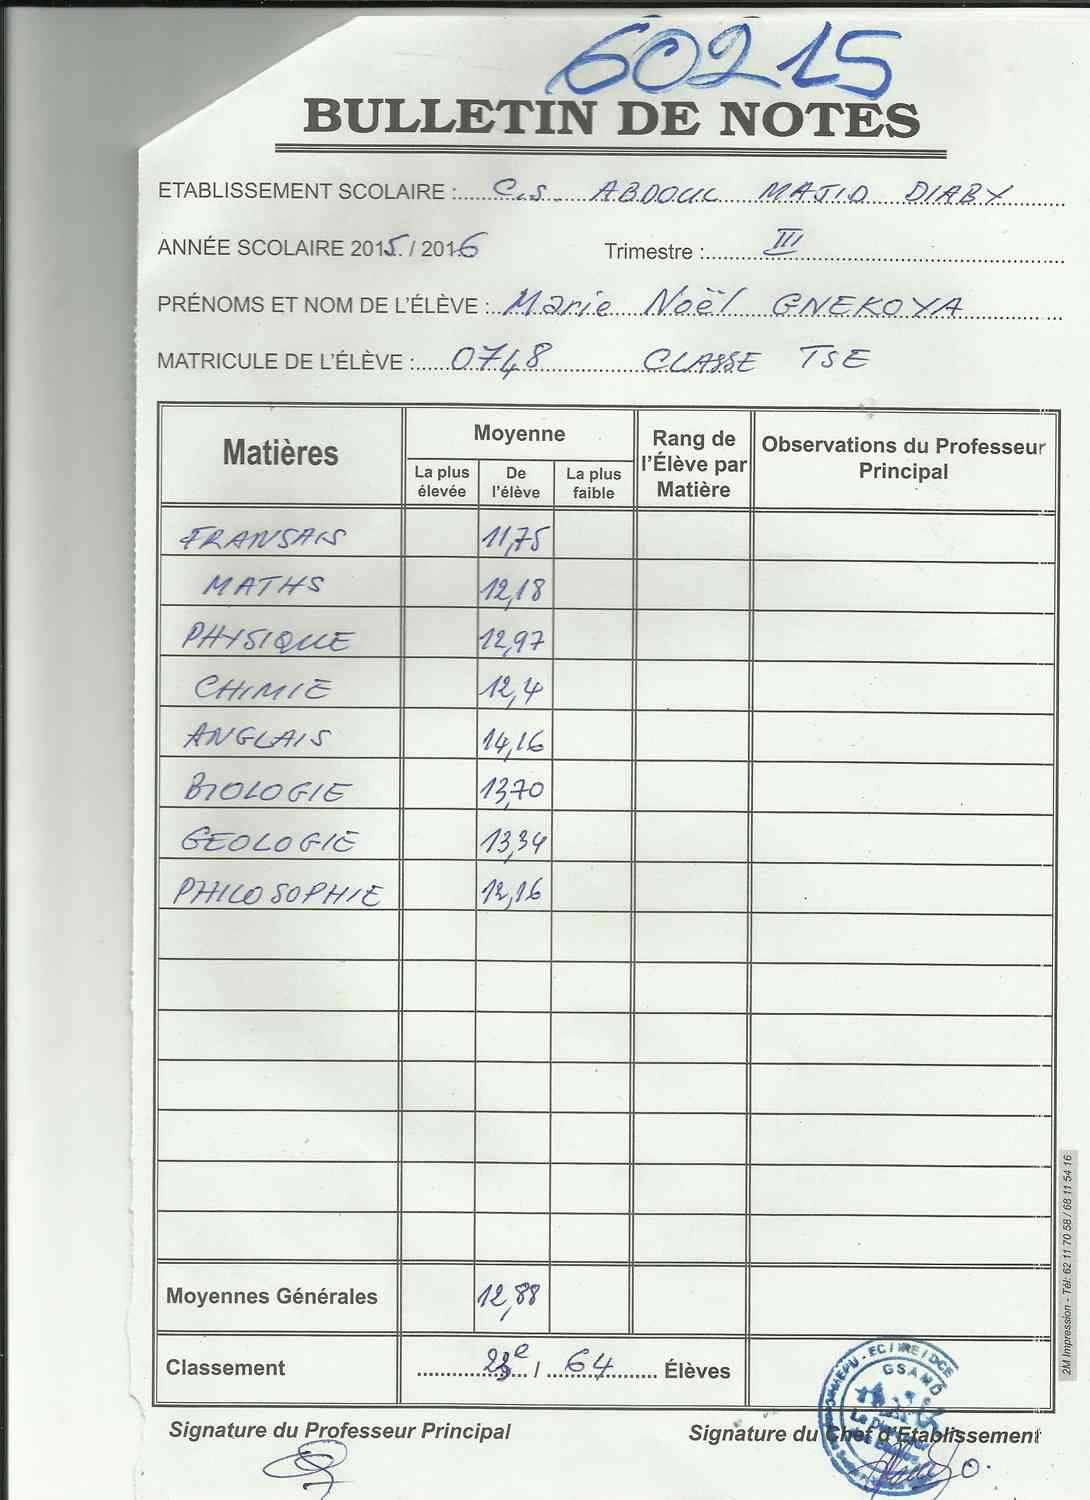 60215
BULLETIN DE NOTES
ETABLISSEMENT SCOLAIRE : C.S. ABDOUL MAJID DIABY
ANNÉE SCOLAIRE 2015 / 2016 Trimestre : III
PRÉNOMS ET NOM DE L'ÉLÈVE : Marie Noël GNEKOYA
MATRICULE DE L'ÉLÈVE : 0748 CLASSE TSE
Matières Moyenne Rang de l'Élève par Matière Observations du Professeur Principal
La plus élevée De l'élève La plus faible
FRANSAIS 11,75
MATHS 12,18
PHYSIQUE 12,97
CHIMIE 12,4
ANGLAIS 14,16
BIOLOGIE 13,70
GEOLOGIE 13,34
PHILOSOPHIE 12,16
Moyennes Générales 12,88
Classement / 64 Élèves
Signature du Professeur Principal Signature du Chef d'Etablissement
GSAMD
2M Impression - Tél: 62 11 70 58 / 68 11 54 16